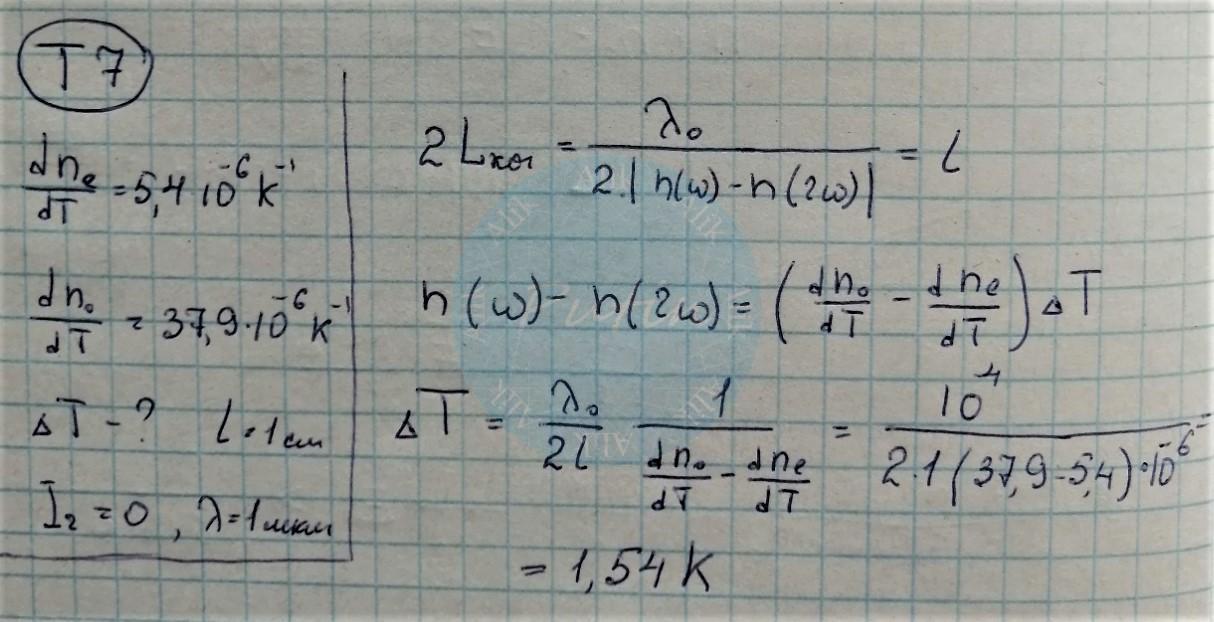 T 7
dnₑ/dT = 5,4 10⁻⁶ K⁻¹
dn₀/dT = 37,9·10⁻⁶ K⁻¹
ΔT - ? l = 1 см
I₂ = 0, λ = 1 мкм
2 Lког = λ₀ / 2·|n(ω) - n(2ω)| = l
n(ω) - n(2ω) = (dn₀/dT - dnₑ/dT) ΔT
ΔT = λ₀/2l 1/(dn₀/dT - dnₑ/dT) = 10⁻⁴ / 2·1(37,9-5,4)·10⁻⁶
= 1,54 K
Alik
Alik
Alik
Alik